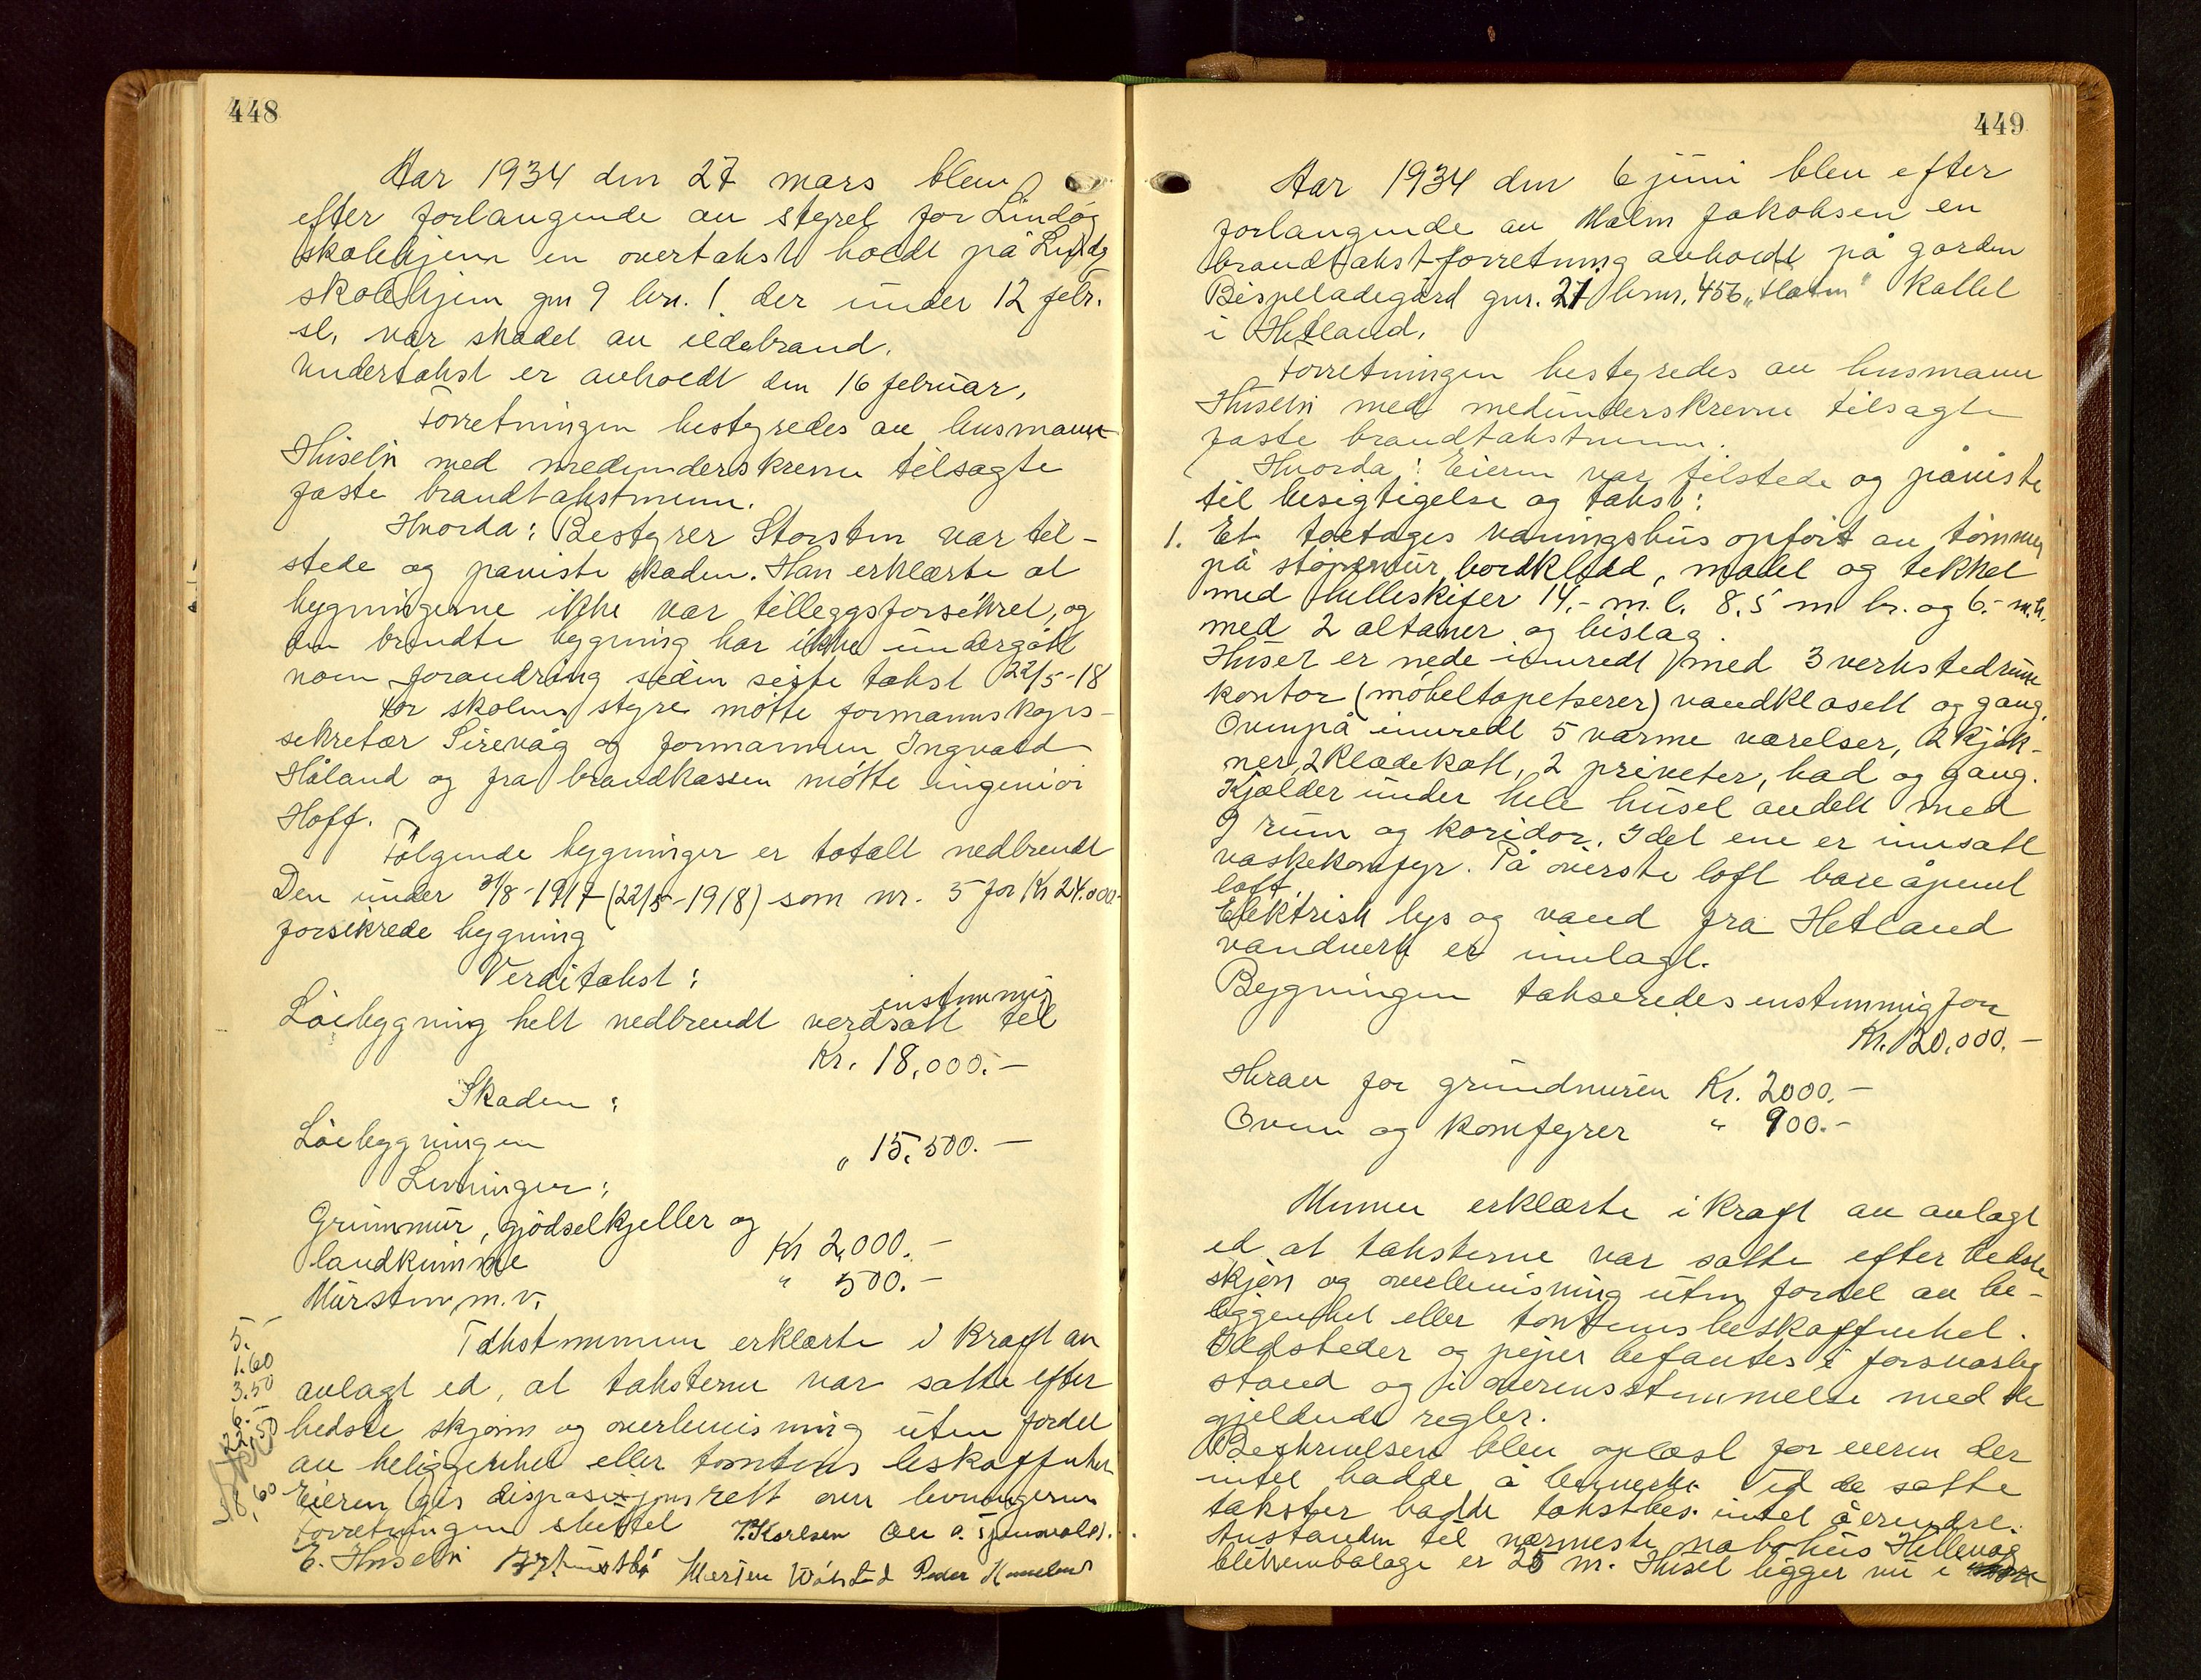 448
Aar 1934 den 27 mars blev
efter forlangende av styret for Lindøy
skolehjem en overtakst holdt på Lindøy
skolehjem gnr 9 brn. 1 der under 12 febr.
sl. var skadet av ildebrand.
Undertakst er avholdt den 16 februar.
Forretningen bestyredes av lensmann
Husebø med medunderskrevne tilsagte
faste brandtakstmenn.
Hvorda: Bestyrer Storsten var til-
stede og paviste skaden. Han erklærte at
bygningerne ikke var tilleggsforsikret, og
den brendte bygning har ikke undergått
noen forandring siden siste takst 22/5-18
For skolens styre møtte formannskaps-
sekretær Sirevåg og formannen Ingvald
Håland og fra brandkassen møtte ingeniør
Hoff.
Følgende bygninger er totalt nedbrendt
Den under 31/8-1917 (22/5-1918) som nr. 5 for Kr 24.000-
forsikrede bygning
Verditakst:
enstemmig
Løebygning helt nedbrendt verdsatt til
Kr. 18,000.-
Skaden:
Løebygningen " 15,500.-
Levninger:
Grunnmur, gjødselkjeller og
landkumme Kr 2,000.-
Mursten m.v. " 500.-
Takstmennene erklærte i kraft av
avlagt ed, at taksterne var satte efter
bedste skjønn og overbevisning uten fordel
av beliggenhet eller tomtens beskaffenhet
Eieren gis disposisjonsrett over levningerne
Forretningen sluttet V. Karlsen
E. Husebø Morten
5.-
1.60
3.50
449
Aar 1934 den 6 juni blev efter
forlangende av Malm Jakobsen en
brandtakstforretning avholdt på garden
Bispeladegård gnr. 27 brnr. 456 "Hatm" kallet
i Hetland.
Forretningen bestyredes av lensmann
Husebø med medunderskrevne tilsagte
faste brandtakstmenn.
Hvorda: Eieren var tilstede og påviste
til besigtigelse og takst:
1. Et toetages våningshus opført av tømmer
på støpemur, bordkledd, malet og tekket
med helleskifer 14,- m. l. 8,5 m br. og 6.- m.h.
med 2 altaner og bislag.
Huset er nede innredt med 3 verkstedrum
kontor (møbeltapetserer) vandklosett og gang.
Ovenpå innredt 5 varme værelser, 2 kjøk-
ner, 2 kladekott, 2 priveter, bad og gang.
Kjælder under hele huset avdelt med
9 rum og koridor. I det ene er innsatt
vaskekomfyr. På øverste loft bare åpent
loft.
Elektrisk lys og vand fra Hetland
vandverk er innlagt.
Bygningen takseredes enstemmig for
Kr. 20,000.-
Herav for grundmuren Kr. 2000.-
Ovner og komfyrer " 900.-
Mennene erklærte i kraft av avlagt
ed at taksterne var satte efter bedste
skjøn og overbevisning uten fordel av be-
liggenhet eller tomtens beskaffenhet.
Ildsteder og piper befantes i forsvarlig
stand og i overensstemmelse med de
gjeldende regler.
Beskrivelsen blev oplæst for eieren der
intet hadde å bemerke. Ved de satte
takster hadde takstbes. intet å erindre.
Avstanden til nærmeste nabohus Hillevåg
blikemballage er 25 m. Huset ligger nu i